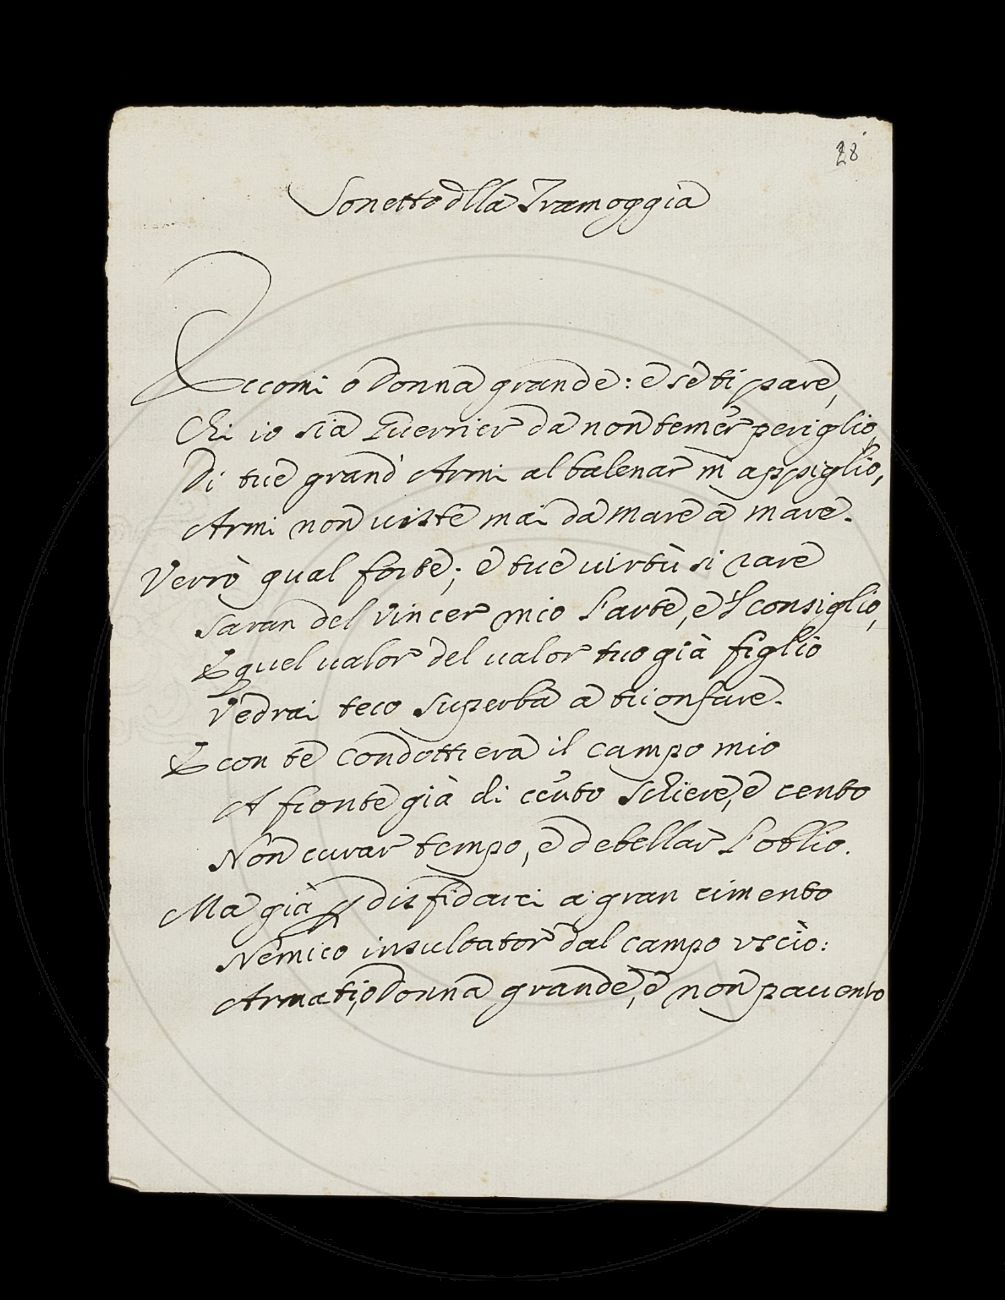 28
Sonetto dlla Tramoggia
Eccomi o Donna grande: e se ti pare,
Ch'io sia Guerrier da non temer periglio
Di tue grand' Armi al balenar m'appiglio,
Armi non uiste mai da mare a mare.
Verrò qual forte; e tue uirtù si rare
Saran del vincer mio l'arte, e 'l consiglio,
E quel ualor del ualor tuo già figlio
Vedrai teco superba a trionfare.
E con te condottiera il campo mio
A fronte già di cento schiere, e cento
Non curar tempo, e debellar l'oblio.
Ma già p disfidarci a gran cimento
Nemico insultator dal campo vscio:
Armati, o Donna grande, e non pauento